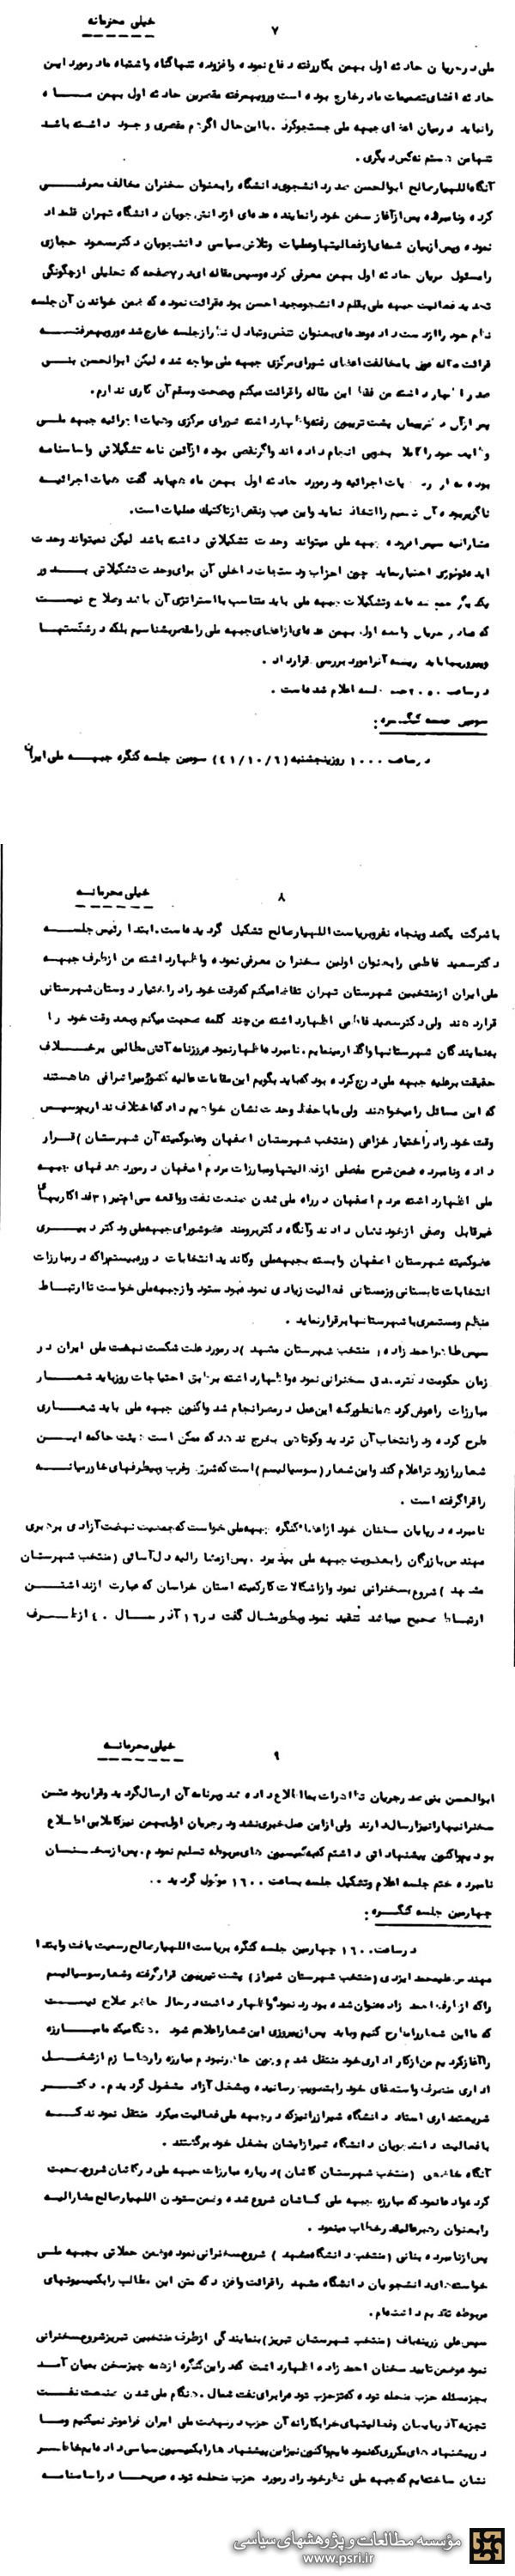 خیلی محرمانه
۷
ملی در جریان حادثه اول بهمن بکار رفته دفاع نموده و افزوده تنها گناه و اشتباه ما در مورد این
حادثه افشای تصمیمات ما در خارج بوده است و رویهمرفته مقصرین حادثه اول بهمن ماه
را نباید در میان اعضای جبهه ملی جستجو کرد . با این حال اگر هم مقصری وجود داشته باشد
تنها من هستم نه کس دیگری .
آنگاه اللهیار صالح ابوالحسن صدر دانشجوی دانشگاه را بعنوان سخنران مخالف معرفی
کرده و نامبرده پس از آغاز سخن خود را نماینده عده‌ای از دانشجویان دانشگاه تهران قلمداد
نموده و پس از بیان شمه‌ای از فعالیتها و عملیات و تلاش سیاسی دانشجویان دکتر مسعود حجازی
را مسئول جریان حادثه اول بهمن معرفی کرده و سپس مقاله ای در ۷ صفحه که تحلیلی از چگونگی
تجدید فعالیت جبهه ملی بقلم دانشجو مجید احسن بود قرائت نموده که ضمن خواندن آن جلسه
نظم خود را از دست داده و عده‌ای بعنوان تنفس و تبادل نظر از جلسه خارج شده و رویهمرفته
قرائت مقاله فوق با مخالفت اعضای شورای مرکزی جبهه ملی مواجه شده لیکن ابوالحسن بنی
صدر اظهار داشته من فقط این مقاله را قرائت میکنم و بصحت و سقم آن کاری ندارم .
پس از آن پشت تریبون رفته و اظهار داشته شورای مرکزی و هیات اجرائیه جبهه ملی
وظایف خود را کاملا بخوبی انجام داده اند و اگر نقصی بوده از آئین نامه تشکیلاتی و اساسنامه
بوده هیات اجرائیه و در مورد حادثه اول بهمن ماه هم باید گفت هیات اجرائیه
ناگزیر بوده آن تصمیم را اتخاذ نماید و این عیب و نقص از تاکتیک عملیات است .
مشارالیه سپس افزوده جبهه ملی میتواند وحدت تشکیلاتی داشته باشد لیکن نمیتواند وحدت
ایدئولوژی اختیار نماید چون احزاب و دستجات داخلی آن برای وحدت تشکیلاتی بدور
یکدیگر جمع شده‌اند و تشکیلات جبهه ملی باید متناسب با استراتژی آن باشد و صلاح نیست
که ما در جریان واقعه اول بهمن عده‌ای از اعضای جبهه ملی را مقصر بشناسیم بلکه در شکستها
و پیروزیها باید ریشه آنرا مورد بررسی قرار داد .
در ساعت ۲۰۰۰ ختم جلسه اعلام شده است .
سومین جلسه کنگره :
در ساعت ۱۰۰۰ روز پنجشنبه (۴۱/۱۰/۶) سومین جلسه کنگره جبهه ملی ایران
خیلی محرمانه
۸
با شرکت یکصد و پنجاه نفر و بریاست اللهیار صالح تشکیل گردیده است . ابتدا رئیس جلسه
دکتر سعید فاطمی را بعنوان اولین سخنران معرفی نموده و اظهار داشته من از طرف جبهه
ملی ایران از منتخبین شهرستان تهران تقاضا میکنم که وقت خود را در اختیار دوستان شهرستانی
قرار دهند ولی دکتر سعید فاطمی اظهار داشته من چند کلمه صحبت میکنم و بعد وقت خود را
به نمایندگان شهرستانها واگذار مینمایم . نامبرده اظهار نمود امروز نامه آتش مطالبی برخلاف
حقیقت بر علیه جبهه ملی درج کرده بود که باید بگویم این مقامات عالیه کشور میراشرافی ها هستند
که این مسائل را میخواهند ولی ما با حفظ وحدت نشان خواهیم داد که اختلاف نداریم و سپس
وقت خود را در اختیار خزاعی (منتخب شهرستان اصفهان و عضو کمیته آن شهرستان) قرار
داده و نامبرده ضمن شرح مفصلی از فعالیتها و مبارزات مردم اصفهان در مورد هدفهای جبهه
ملی اظهار داشته مردم اصفهان در راه ملی شدن صنعت نفت و واقعه سی ام تیر ۳۱ فداکاریهای
غیر قابل وصفی از خود نشان دادند و آنگاه دکتر برومند عضو شورای جبهه ملی و دکتر دبیری
عضو کمیته شهرستان اصفهان وابسته بجبهه ملی و کاندید انتخابات دوره بیستم را که در مبارزات
انتخابات تابستانی و زمستانی فعالیت زیادی نموده بود ستود و از جبهه ملی خواست تا ارتباط
منظم و مستمری با شهرستانها برقرار نماید .
سپس طاهر احمد زاده (منتخب شهرستان مشهد) در مورد علت شکست نهضت ملی ایران در
زمان حکومت دکتر مصدق سخنرانی نموده و اظهار داشته بر طبق احتیاجات روز باید شعار
مبارزات را عوض کرد همانطور که این عمل در مصر انجام شد و اکنون جبهه ملی باید شعاری
طرح کرده و در انتخاب آن تردید و کوتاهی بخرج ندهد که ممکن است هیئت حاکمه این
شعار را زودتر اعلام کند و این شعار (سوسیالیسم) است که شرق و غرب و بیطرفهای خاورمیانه
را فرا گرفته است .
نامبرده در پایان سخنان خود از اعضای کنگره جبهه ملی خواست که جمعیت نهضت آزادی برهبری
مهندس بازرگان را بعضویت جبهه ملی بپذیرد . پس از مشارالیه دل آسائی (منتخب شهرستان
مشهد) شروع بسخنرانی نمود و از اشکالات کار کمیته استان خراسان که عبارت از نداشتن
ارتباط صحیح میباشد تنقید نمود و بطور مثال گفت در ۱۶ آذر سال ۴۰ از طرف
خیلی محرمانه
۹
ابوالحسن بنی صدر جریان تظاهرات بما اطلاع داده شد و برنامه آن ارسال گردید و قرار بود متن
سخنرانیها را نیز ارسال دارند ولی از این عمل خبری نشد و در جریان اول بهمن نیز کاملا بی اطلاع
بودیم و اکنون پیشنهاداتی داشتم که به کمیسیون های مربوطه تسلیم نمودم . پس از سخنان
نامبرده ختم جلسه اعلام و تشکیل جلسه بساعت ۱۶۰۰ موکول گردید ..
چهارمین جلسه کنگره :
در ساعت ۱۶۰۰ چهارمین جلسه کنگره بریاست اللهیار صالح رسمیت یافت و ابتدا
مهندس علیمحمد ایزدی (منتخب شهرستان شیراز) پشت تریبون قرار گرفته و شعار سوسیالیسم
را که از طرف احمد زاده عنوان شده بود رد نمود و اظهار داشت در حال حاضر صلاح نیست
که ما این شعار را مطرح کنیم و باید پس از پیروزی این شعار را اعلام شود . هنگامیکه ما مبارزه
را آغاز کردیم من از کار اداری خود منتقل شدم و چون حاضر نبودم مبارزه را رها سازم از شغل
اداری منصرف و استعفای خود را بتصویب رسانیده و بشغل آزاد مشغول گردیدم . دکتر
شریعتمداری استاد دانشگاه شیراز را نیز که در جبهه ملی فعالیت میکرد منتقل نمودند که
با فعالیت دانشجویان دانشگاه شیراز ایشان بشغل خود برگشتند .
آنگاه (منتخب شهرستان کاشان) درباره مبارزات جبهه ملی در کاشان شروع بصحبت
کرد و ادعا نمود که مبارزه جبهه ملی کاشان شروع شده و ضمن ستودن اللهیار صالح مشارالیه
را بعنوان رهبر عالیقدر خطاب مینمود .
پس از نامبرده بنائی (منتخب دانشگاه مشهد) شروع بسخنرانی نموده و ضمن حملاتی بجبهه ملی
خواسته‌های دانشجویان دانشگاه مشهد را قرائت و افزود که متن این مطالب را بکمیسیونهای
مربوطه تقدیم داشته‌ام .
سپس علی زرینه‌باف (منتخب شهرستان تبریز) بنمایندگی از طرف منتخبین تبریز شروع بسخنرانی
نمود و ضمن تایید سخنان احمد زاده اظهار داشت که در این کنگره از همه چیز سخن بمیان آمد
بجز مسئله حزب منحله توده که جز حزب توده را برای نفت شمال . هنگام ملی شدن صنعت نفت
تجزیه آذربایجان و فعالیتهای خرابکارانه آن حزب در نهضت ملی ایران فراموش نمیکنیم و ما
در پیشنهادهای مکرری که نموده‌ایم و اکنون نیز این پیشنهادها را بکمیسیون سیاسی داده‌ایم خاطر
نشان ساخته‌ایم که جبهه ملی نظر خود را در مورد حزب منحله توده صریحا در اساسنامه
مؤسسه مطالعات و پژوهشهای سیاسی
www.psri.ir